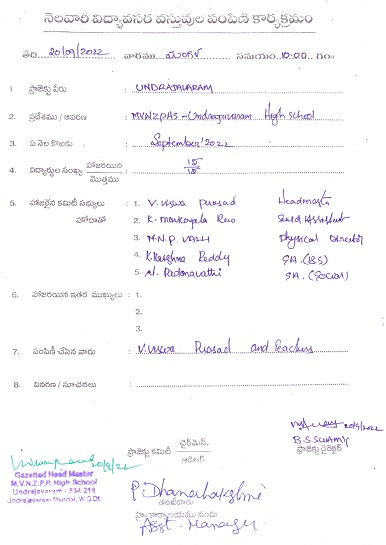 నెలవారి విద్యావసర వస్తువుల పంపిణి కార్యక్రమం
తేది 20/09/2022 వారము మంగళ సమయం 10:00 గం
1. ప్రాజెక్టు పేరు : UNDRAJAVARAM
2. ప్రదేశము / ఆవరణ : MVNZPHS - Undrajavaram High School
3. ఏ నెల కొఱకు : September' 2022
4. విద్యార్థుల సంఖ్య హాజరయిన / మొత్తము : 15/15
5. హాజరైన కమిటీ సభ్యులు : 1. V. Viswa Prasad Headmaster
హోదాతో 2. K. Rao Senior Assistant
3. M.N.P. VALLI Physical Director
4. K. Krishna Reddy S.A. (B.S)
5. N. Padmavathi S.A. (Social)
6. హాజరయిన ఇతర ముఖ్యులు : 1.
2.
3.
7. పంపిణీ చేసిన వారు : V. Viswa Prasad and Teachers
8. వివరణ / సూచనలు :
20/9/22
ప్రాజెక్టు కమిటీ ఛైర్మెన్. ప్రాజెక్టు డైరెక్టర్
B.S. SWAMY
20/9/2022
20/9/22
Gazetted Head Master
M.V.N.Z.P.P. High School
Undrajavaram - 534 219
Undrajavaram Mandal, W.G.Dt.
P. Dhanalakshmi
Asst. Manager